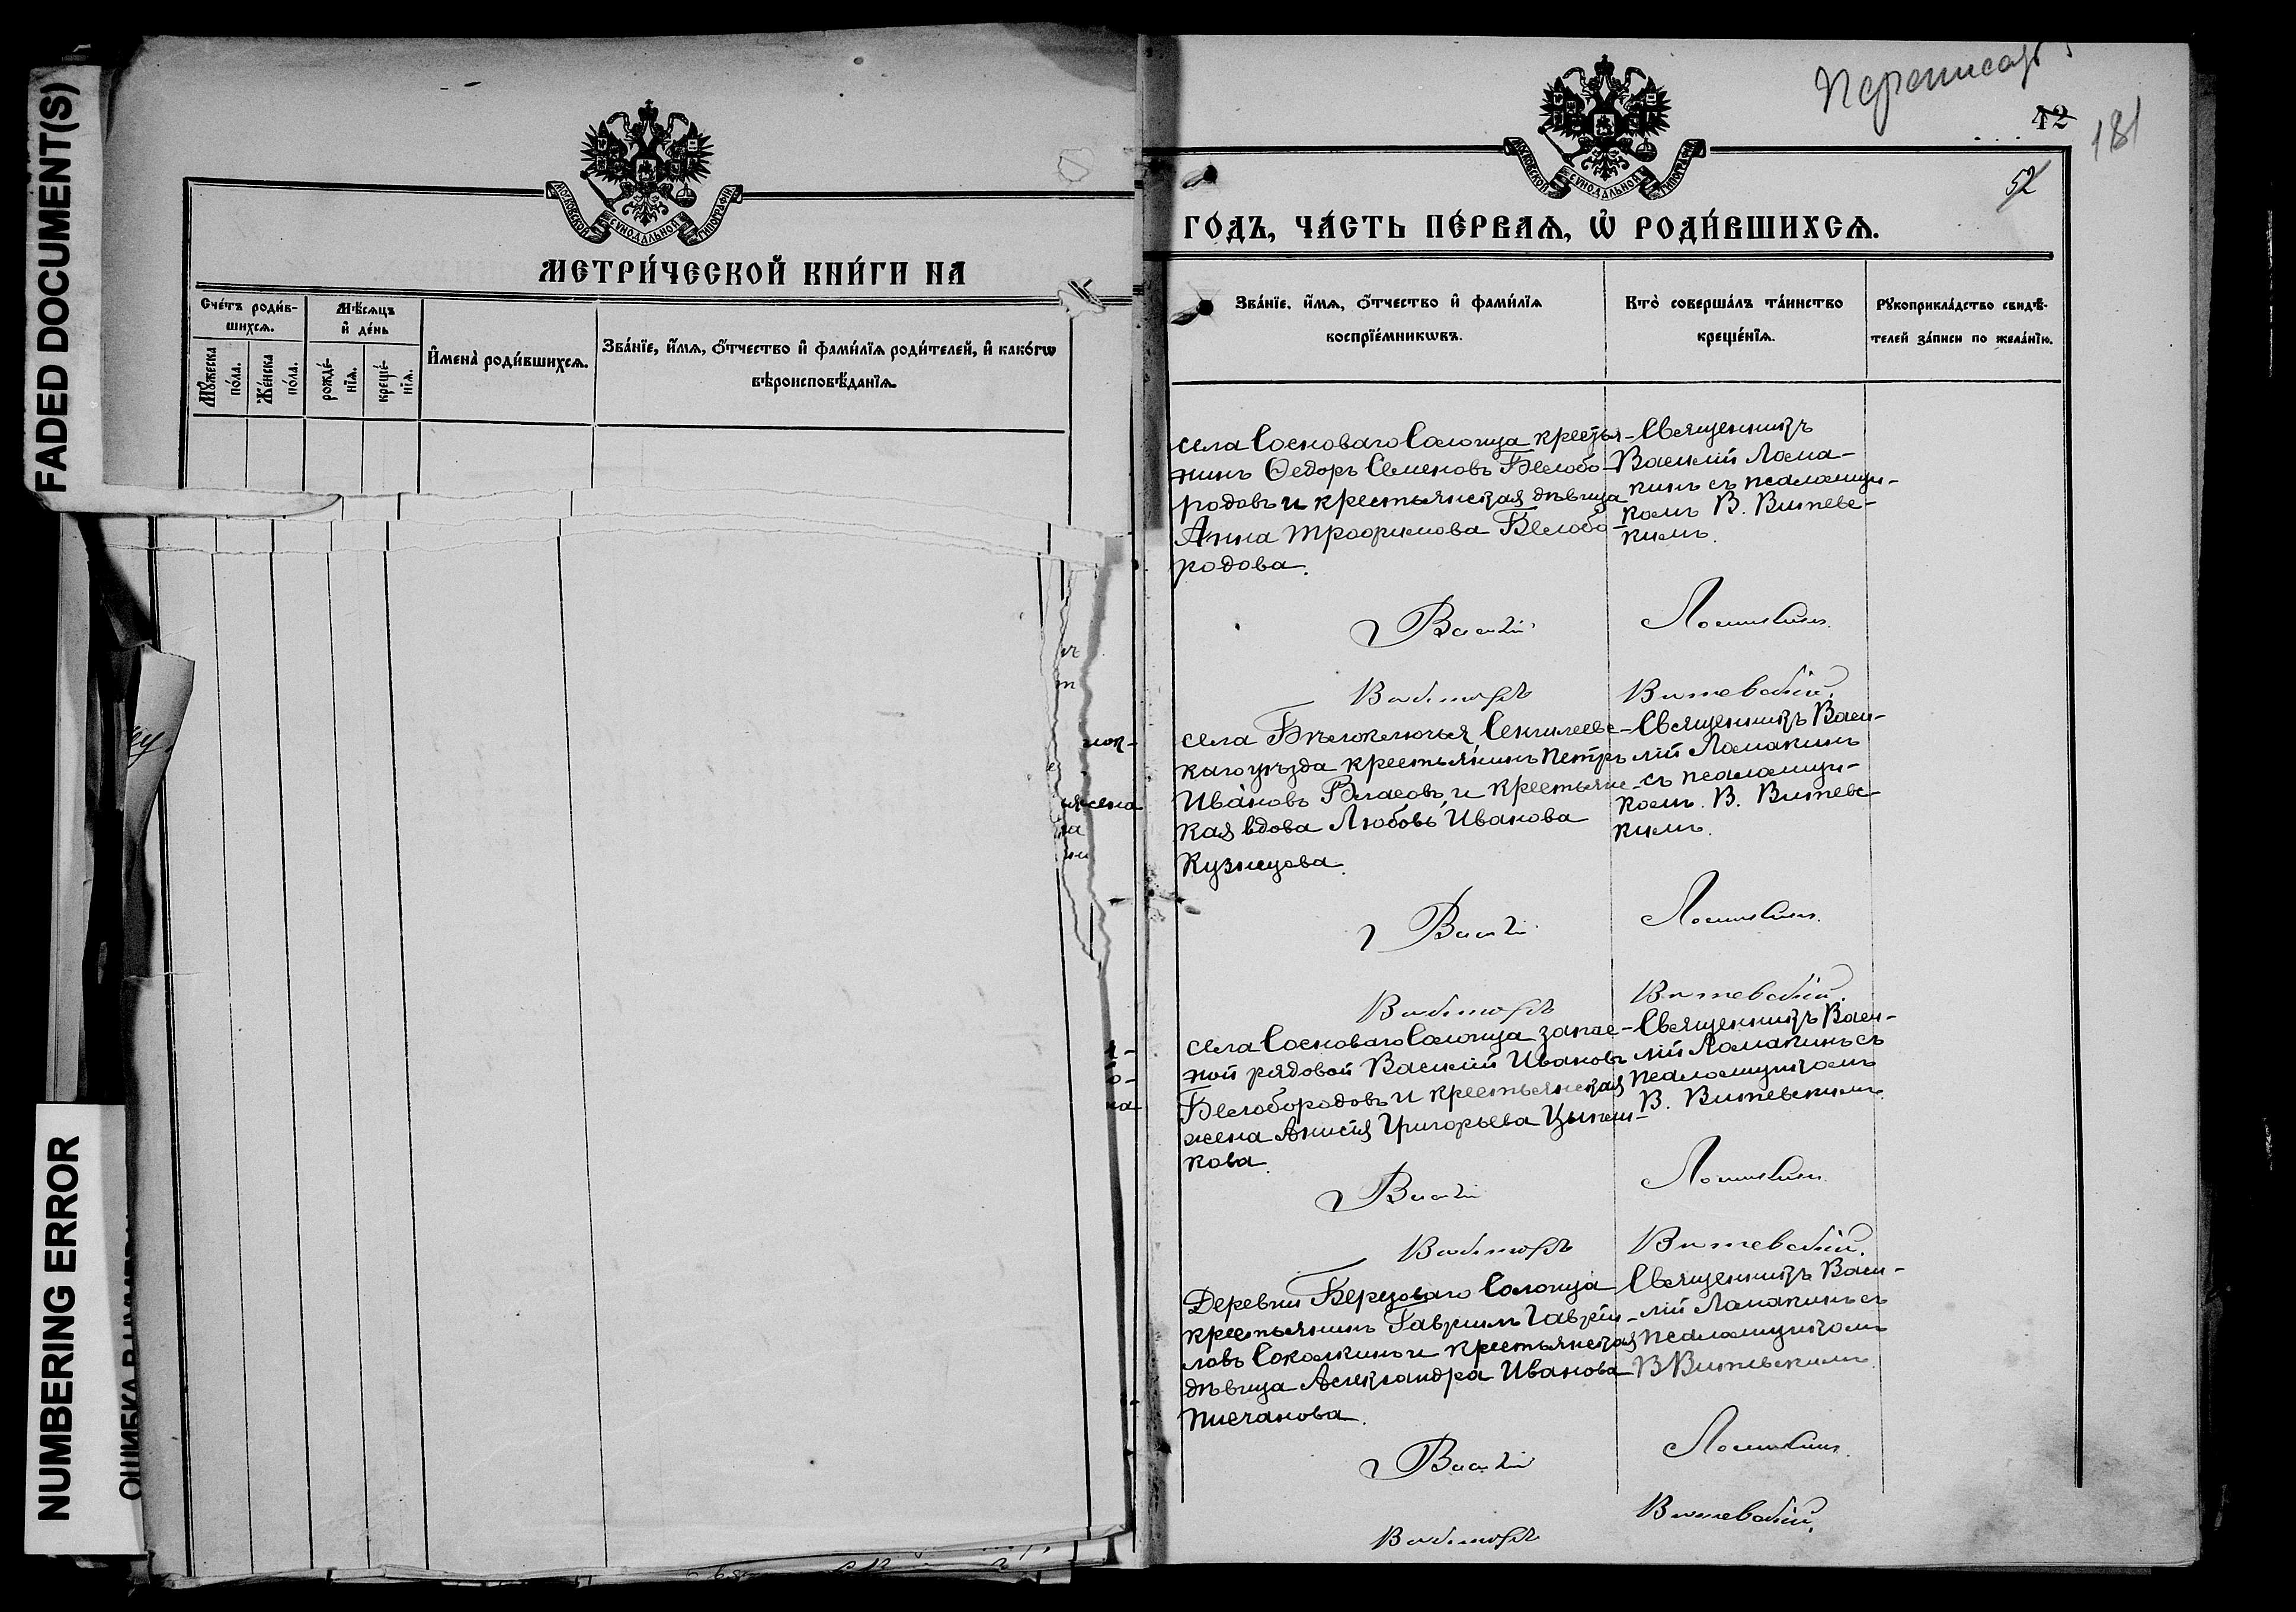 FADED DOCUMENT(S)
NUMBERING ERROR
МОСКОВСКОЙ СѴНОДАЛЬНОЙ ТИПОГРАФІИ
МЕТРИ́ЧЕСКОЙ КНИ́ГИ НА
Сче́тъ роди́в-
шихсѧ.
Мѣ́сѧцъ
и҆ де́нь
Мꙋ́жеска
по́ла.
Же́нска
по́ла.
рожде́-
нїѧ.
креще́-
нїѧ.
И҆мена̀ роди́вшихсѧ.
Зва́нїе, и҆́мѧ, ѻ҆́тчество и҆ фамилїѧ роди́телей, и҆ како́гѡ
вѣроисповѣ́данїѧ.
Переписать
42
181
52
МОСКОВСКОЙ СѴНОДАЛЬНОЙ ТИПОГРАФІИ
ГО́ДЪ, ЧА́СТЬ ПЕ́РВАѦ, Ѡ҆ РОДИ́ВШИХСѦ.
Зва́нїе, и҆́мѧ, ѻ҆́тчество и҆ фами́лїѧ
воспрїе́мникѡвъ.
Кто̀ соверша́лъ та́инство
креще́нїѧ.
Рꙋкоприкла́дство свидѣ́-
телей за́писи по жела́нїю.
села Сосноваго Солонца крестья-
нинъ Ѳедоръ Семеновъ Белобо-
родовъ и крестьянская дѣвица
Анна Трофимова Белобо-
родова.
Священникъ
Василій Лома-
кинъ съ псаломщи-
комъ В. Витевс-
кимъ.
Василій Ломакин.
Викторъ Витевскій.
села Бѣлоключья, Сенгилеевс-
каго уѣзда крестьянинъ Петръ
Ивановъ Власовъ, и крестьянс-
кая вдова Любовь Иванова
Кузнецова.
Священникъ Васи-
лій Ломакинъ
съ псаломщи-
комъ. В. Витевс-
кимъ.
Василій Ломакин.
Викторъ Витевскій.
села Сосноваго Солонца запас-
ной рядовой Василій Ивановъ
Белобородовъ и крестьянская
жена Анисія Григорьева Цыпи-
кова.
Священникъ Васи-
лій Ломакинъ съ
псаломщикомъ
В. Витевскимъ.
Василій Ломакин.
Викторъ Витевскій.
Деревни Березоваго Солонца
крестьянинъ Гавриилъ Гаврiи-
ловъ Соколкинъ и крестьянская
дѣвица Александра Иванова
Писчанова.
Священникъ Васи-
лій Ломакинъ съ
псаломщикомъ
В Витевскимъ.
Василій Ломакин.
Викторъ Витевскій.